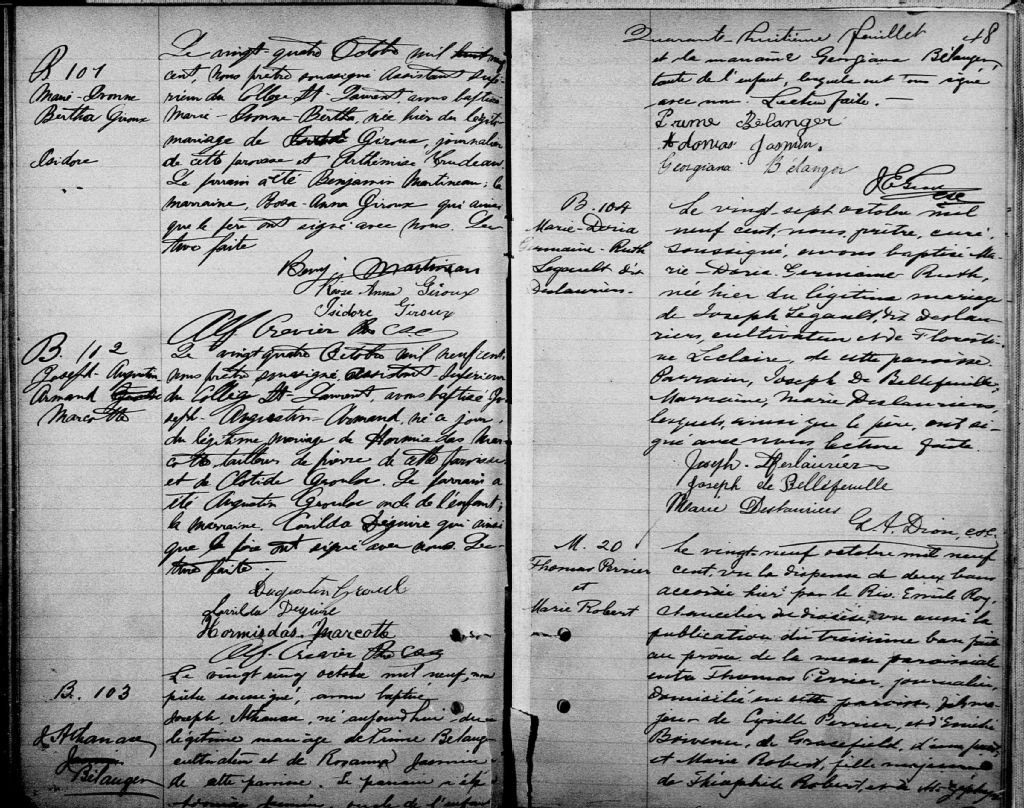 B 101
Marie-Ivonne
Bertha Giroux
Isidore
Le vingt-quatre Octobre mil neuf
cent, nous prêtre soussigné Assistant Supé-
rieur du Collège St-Laurent, avons baptisé
Marie-Ivonne-Bertha, née hier du légitime
mariage de Giroux, journalier
de cette paroisse et Arthémise Trudeau.
Le parrain a été Benjamin Martineau; la
marraine, Rosa-Anna Giroux qui ainsi
que le père ont signé avec nous. Lec-
ture faite
Benj. Martineau
Rose Anna Giroux
Isidore Giroux
Alf. Crevier Ptre CSC
B. 102
Joseph-Augustin
Armand
Marcotte
Le vingt quatre Octobre mil neuf cent,
nous prêtre soussigné, assistant Supérieur
du Collège St-Laurent, avons baptisé Jo-
seph-Augustin-Armand, né ce jour,
du légitime mariage de Hormisdas Mar-
cotte tailleur de pierre de cette paroisse
et de Clotide Groulx. Le parrain a
été Augustin Groulx oncle de l'enfant;
la marraine, Corilda Deguire qui ainsi
que le père ont signé avec nous. Lec-
ture faite.
Augustin Groulx
Corilda Deguire
Hormisdas Marcotte
Alf. Crevier Ptre CSC
B. 103
J. Athanase
Bélanger
Le vingt cinq octobre mil neuf, nous
prêtre soussigné, avons baptisé
Joseph, Athanase, né aujourd'hui du
légitime mariage de Prime Bélanger
cultivateur et de Rosanna Jasmin
de cette paroisse. Le parrain a été
Adonias Jasmin, oncle de l'enfant
Quarante huitième feuillet 48
et la marraine Georgiana Bélanger,
tante de l'enfant, lesquels ont tous signé
avec nous. Lecture faite.—
Prime Bélanger
Adonias Jasmin.
Georgiana Bélanger
B. 104
Marie-Doria
Germaine-Ruth
Legault dit
Deslauriers.
Le vingt-sept octobre mil
neuf cent, nous, prêtre, curé,
soussigné, avons baptisé Ma-
rie-Doria-Germaine Ruth,
née hier du légitime mariage
de Joseph Legault, dit Deslau-
riers, cultivateur et de Floresti-
ne Leclaire, de cette paroisse.
Parrain, Joseph De Bellefeuille,
Marraine, Marie Deslauriers,
lesquels, ainsi que le père, ont si-
gné avec nous lecture faite.
Joseph Deslauriers
Joseph de Bellefeuille
Marie Deslauriers
G. A. Dion, csc.
M. 20
Thomas Perrier
et
Marie Robert
Le vingt-neuf octobre mil neuf
cent, vu la dispense de deux bans
accordée hier par le Rév. Emile Roy,
chancelier du diocèse, vu aussi la
publication du troisième ban faite
au prône de la messe paroissiale
entre Thomas Perrier, journalier,
domicilié en cette paroisse, fils ma-
jeur de Cyrille Perrier, et d'Emélie
Boivenu, de Gracefield, d'une part,
et Marie Robert, fille majeure
de Théophile Robert, et de